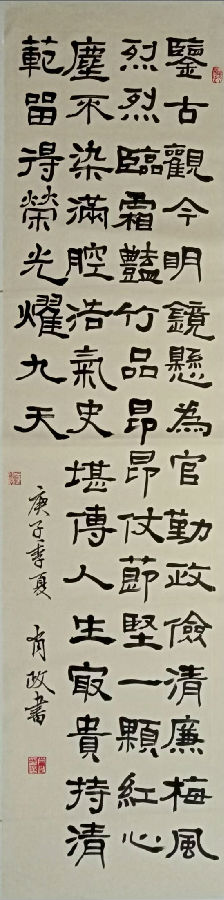 鑒古觀今明鏡懸為官勤政儉清廉梅風
烈烈臨霜豔竹品昂昂仗節堅一顆紅心
塵不染滿腔浩氣史堪傳人生㝡貴持清
範留得榮光耀九天
庚子季夏 肖政書